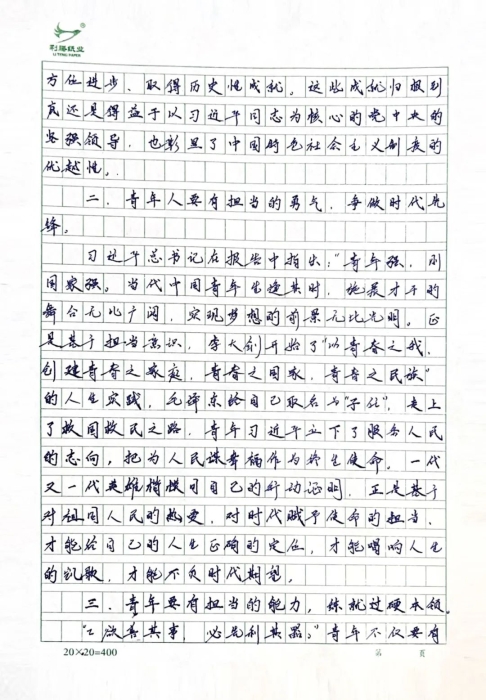 利腾纸业
LITENG PAPER
方位进步、取得历史性成就。这些成就归根到
底还是得益于以习近平同志为核心的党中央的
坚强领导，也彰显了中国特色社会主义制度的
优越性。
二、青年人要有担当的勇气，争做时代先
锋。
习近平总书记在报告中指出："青年强，则
国家强。当代中国青年生逢其时，施展才干的
舞台无比广阔，实现梦想的前景无比光明。正
是基于担当意识，李大钊开始了"以青春之我，
创建青春之家庭，青春之国家，青春之民族"
的人生实践，毛泽东给自己取名与"子任"，走上
了救国救民之路，青年习近平立下了服务人民
的志向，把为人民谋幸福作为终生使命。一代
又一代英雄楷模用自己的行动证明，正是基于
对祖国人民的热爱，对时代赋予使命的担当，
才能给自己的人生正确的定位，才能唱响人生
的凯歌，才能不负时代期望。
三、青年要有担当的能力，练就过硬本领。
"工欲善其事，必先利其器；"青年不仅要有
20×20=400
第 页